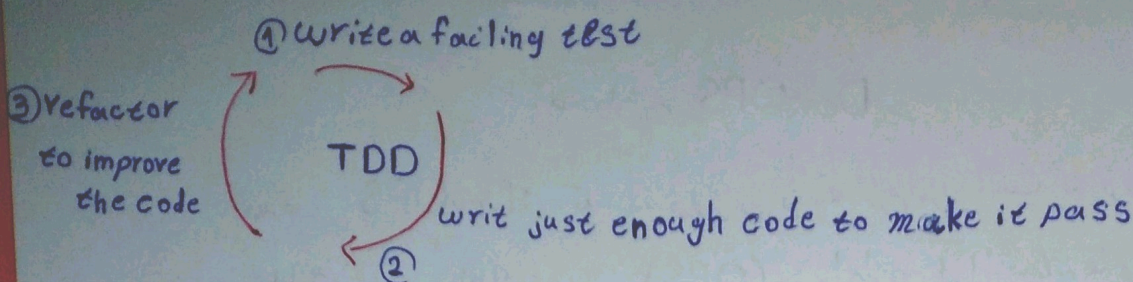 ① write a failing test
③ refactor
to improve
the code
TDD
writ just enough code to make it pass
②